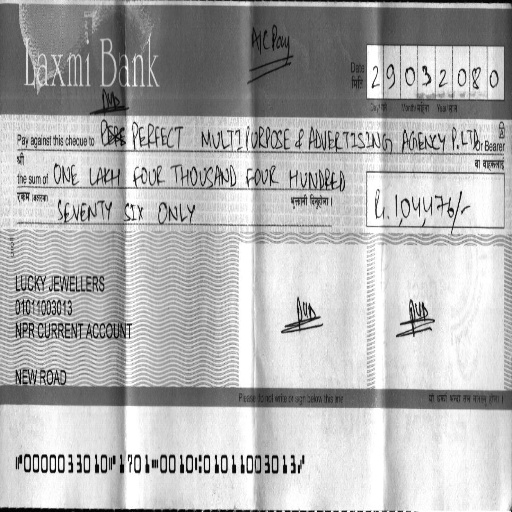 Laxmi Bank
A/C Pay
Date
मिति
29032080
Pay against this cheque to PERFECT MULTIPURPOSE & ADVERTISING AGENCY P. LTD. Or Bearer
श्री
वा वाहकलाई
the sum of ONE LAKH FOUR THOUSAND FOUR HUNDRED
SEVENTY SIX ONLY
भुक्तानी दिनुहोला ।
Rs. 1,04,476/-
LUCKY JEWELLERS
01011003013
NPR CURRENT ACCOUNT
NEW ROAD
Please do not write or sign below this line
⑈0000033010⑈1701⑉0010⑆01011003013⑈